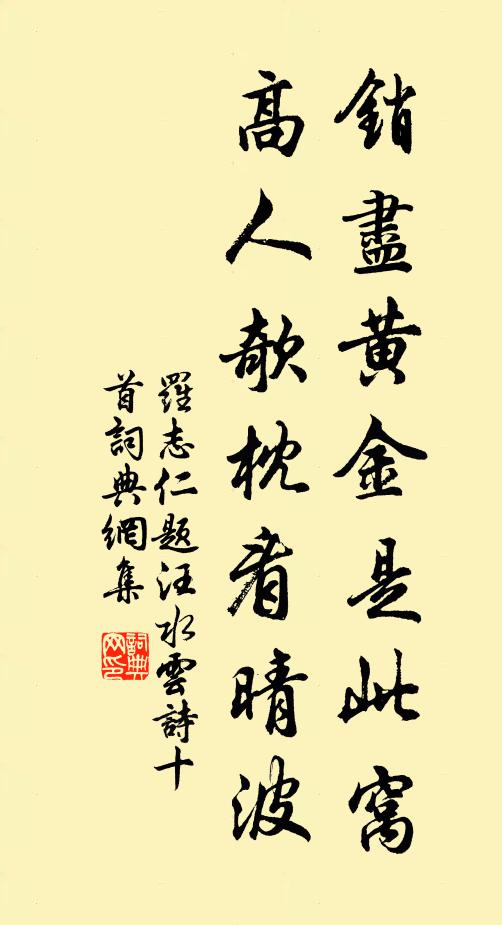 銷盡黄金是此窩
高人欹枕看晴波
羅志仁題汪水雲詩十
首詞典網集